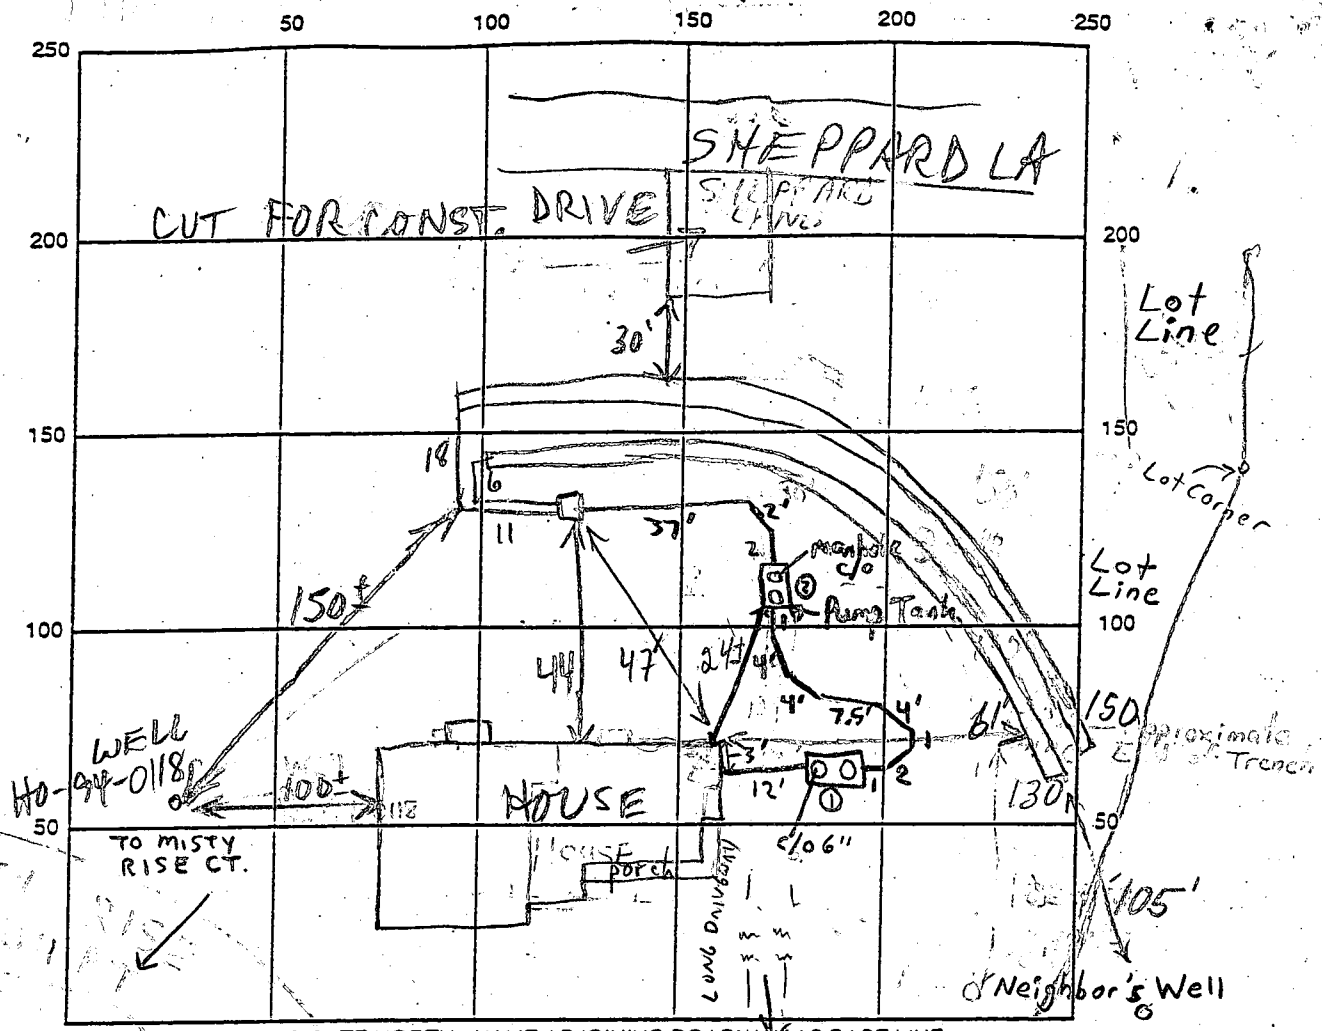 50 100 150 200 250
250
SHEPPARD LA
CUT FOR CONST. DRIVE
200 200
Lot
Line
30'
150 150
18
Lot Corner
6
11 37' 2'
2
manhole
c/o
2
Pump Tank
Lot
Line
150±
100 1 100
44 47' 24± 4'
4' 7.5' 4'
61' 150
Approximate
End of Trench
WELL
HO-94-0118
100±
HOUSE
3'
12' 1 2
1
130
c/o 6"
50 50
TO MISTY
RISE CT.
HOUSE
porch
LONG DRIVEWAY
105'
Neighbor's Well